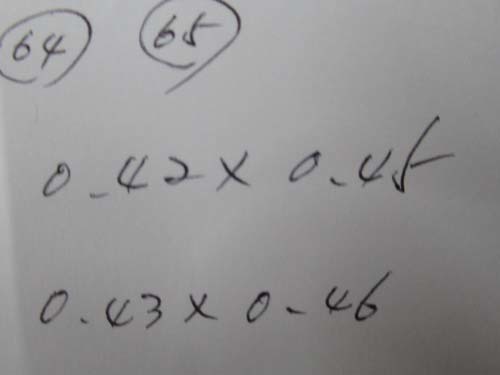 64 65
0.42 x 0.45
0.43 x 0.46